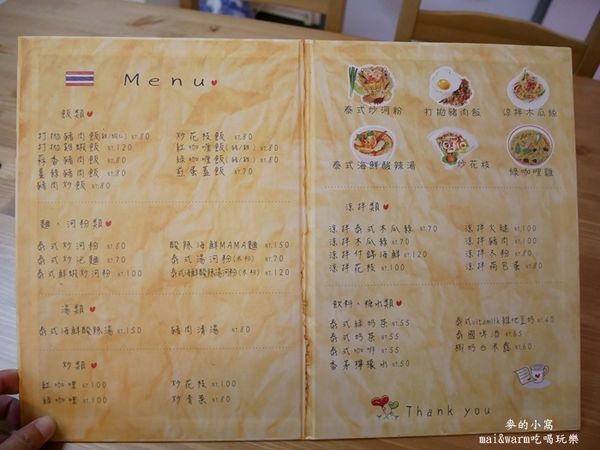 Menu
飯類
打拋豬肉飯(雞/蝦仁) NT.80
打拋雞蝦飯 NT.120
蒜香豬肉飯 NT.80
薑絲豬肉飯 NT.80
豬肉炒飯 NT.80
炒花枝飯 NT.80
紅咖哩飯(豬/雞) NT.80
綠咖哩飯(豬/雞) NT.80
煎蛋蓋飯 NT.70
麵、河粉類
泰式炒河粉 NT.80
泰式炒泡麵 NT.80
泰式鮮蝦炒河粉 NT.100
酸辣海鮮MAMA麵 NT.150
泰式湯河粉(米粉) NT.70
泰式海鮮酸辣湯河粉(米粉) NT.120
湯類
泰式海鮮酸辣湯 NT.150
豬肉清湯 NT.80
炒類
紅咖哩 NT.100
綠咖哩 NT.100
炒花枝 NT.100
炒青菜 NT.80
泰式炒河粉
打拋豬肉飯
涼拌木瓜絲
泰式海鮮酸辣湯
炒花枝
綠咖哩雞
涼拌類
涼拌泰式木瓜絲 NT.70
涼拌木瓜絲 NT.70
涼拌什錦海鮮 NT.120
涼拌花枝 NT.100
涼拌火腿 NT.100
涼拌豬肉 NT.100
涼拌冬粉 NT.80
涼拌荷包蛋 NT.80
飲料、糖水類
泰式綠奶茶 NT.55
泰式奶茶 NT.55
泰式咖啡 NT.55
香茅檸檬水 NT.50
泰式vitamilk維他豆奶 NT.60
泰國啤酒 NT.65
椰奶西米露 NT.60
Thank you
麥的小窩
mai&warm吃喝玩樂